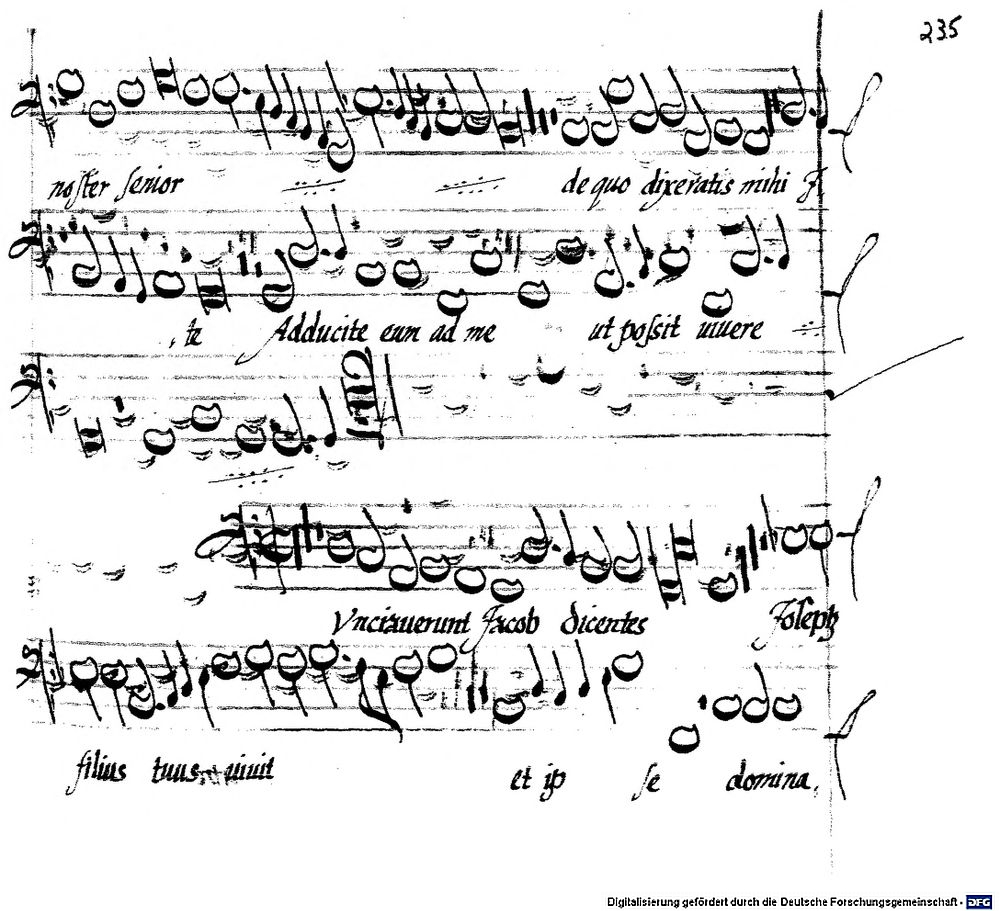 235
noſter ſenior de quo dixeratis mihi J
te Adducite eum ad me ut poſsit uiuere
Vnciauerunt Jacob dicentes Joſeph
filius tuus uiuit et ip ſe domina,
Digitalisierung gefördert durch die Deutsche Forschungsgemeinschaft - DFG